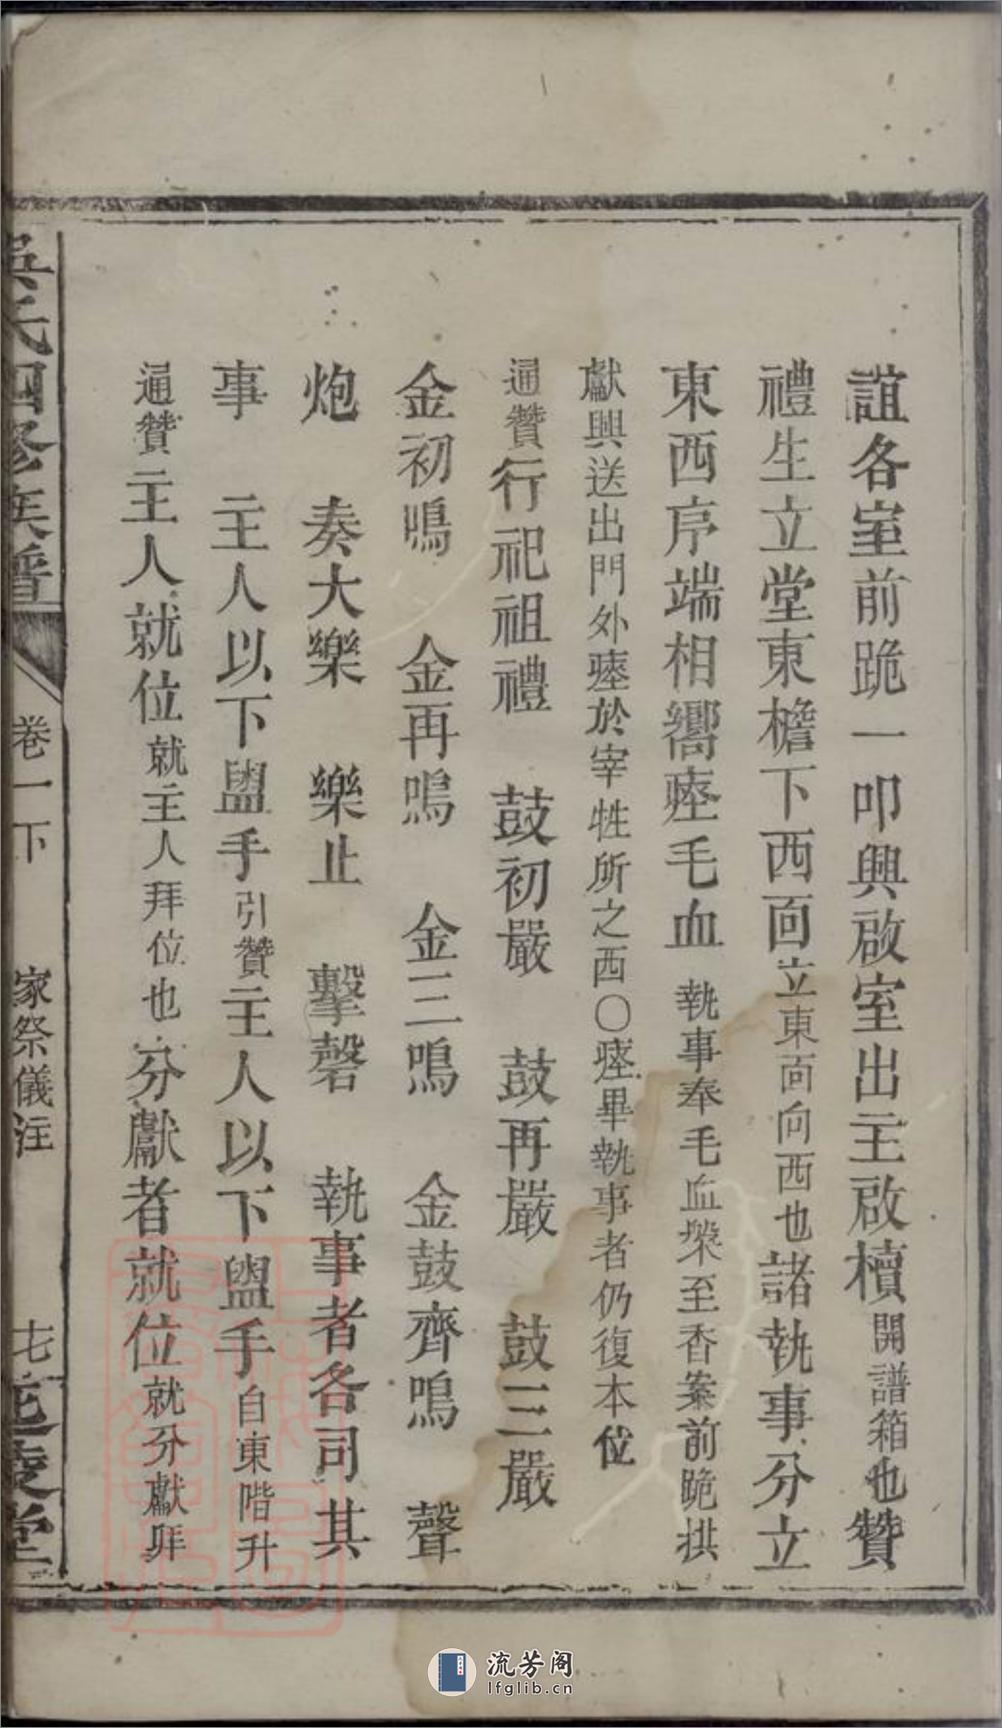 誼各室前跪一叩興啟室出主啟櫝開譜箱也贊
禮生立堂東檐下西面立東面向西也諸執事分立
東西序端相嚮瘞毛血執事奉毛血槃至香案前跪拱
獻興送出門外瘞於宰牲所之西○瘞畢執事者仍復本位
通贊行祀祖禮　鼓初嚴　鼓再嚴　鼓三嚴
金初鳴　金再鳴　金三鳴　金鼓齊鳴　聲
炮　奏大樂　樂止　擊磬　執事者各司其
事　主人以下盥手引贊主人以下盥手自東階升
通贊主人就位就主人拜位也分獻者就位就分獻拜
吳氏四修族譜　卷一下　家祭儀注　七　延陵堂
流芳阁
lfglib.cn